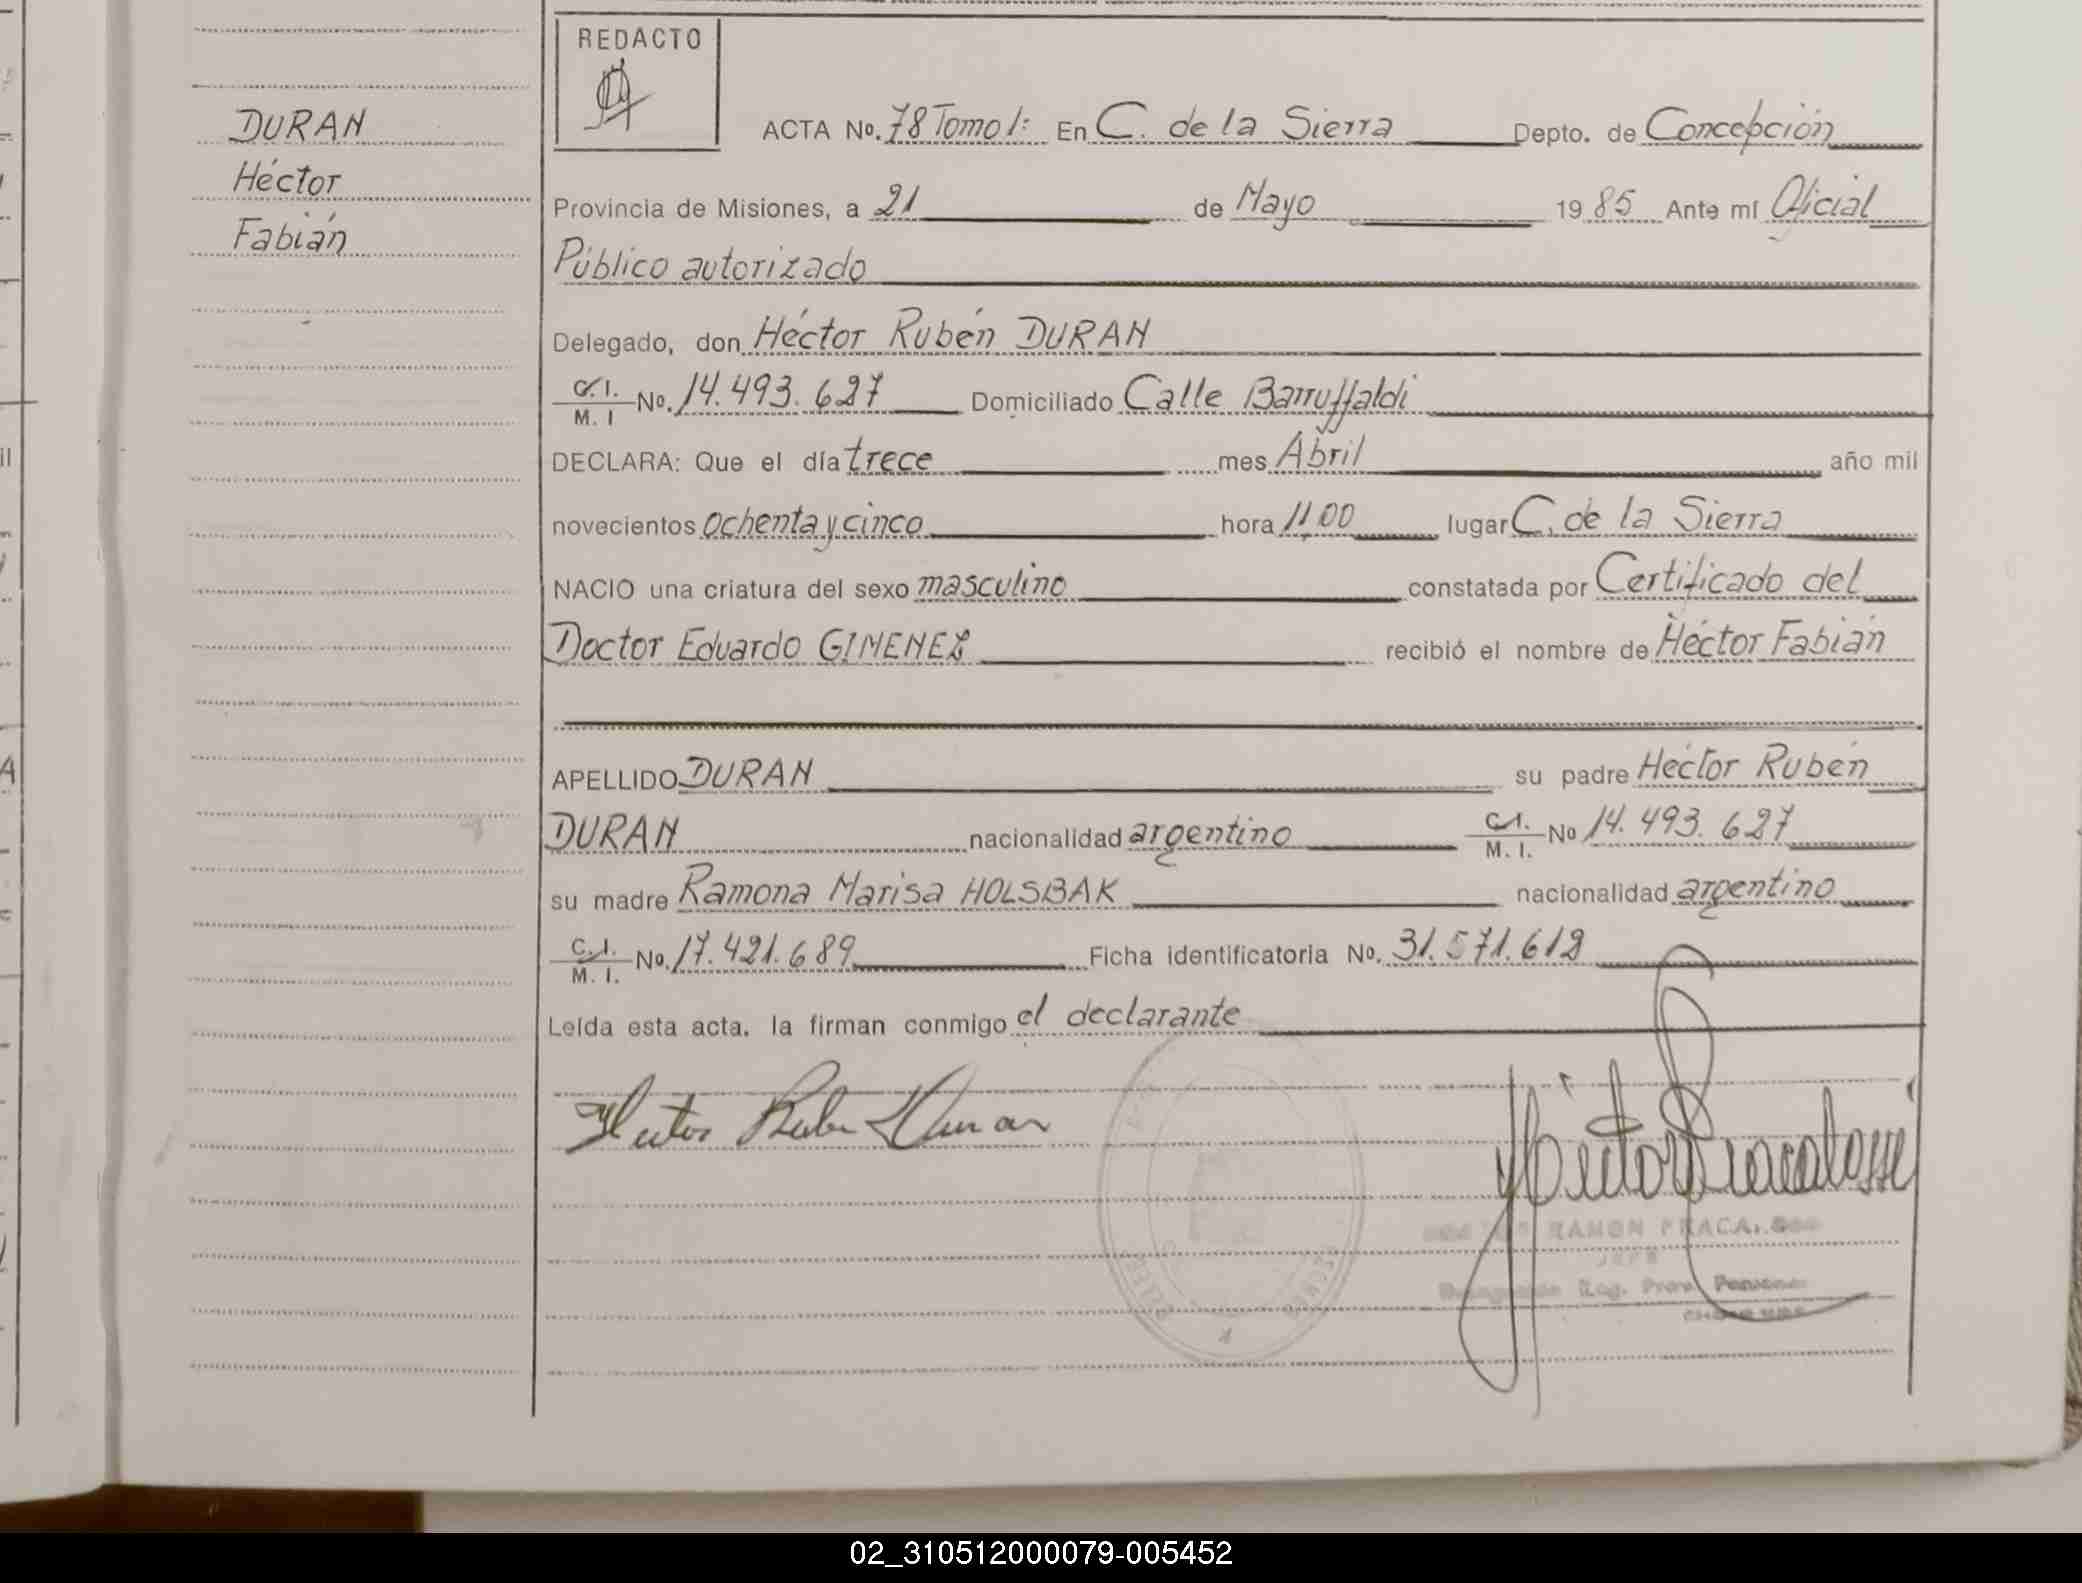 REDACTO
DURAN
Héctor
Fabián
ACTA No. 78 Tomo 1: En C. de la Sierra Depto. de Concepción
Provincia de Misiones, a 21 de Mayo 1985 Ante mí Oficial
Público autorizado
Delegado, don Héctor Rubén DURAN
C.I. M.I No. 14.493.627 Domiciliado Calle Barruffaldi
DECLARA: Que el día trece mes Abril año mil
novecientos ochenta y cinco hora 11,00 lugar C. de la Sierra
NACIO una criatura del sexo masculino constatada por Certificado del
Doctor Eduardo GIMENEZ recibió el nombre de Héctor Fabián
APELLIDO DURAN su padre Héctor Rubén
DURAN nacionalidad argentino C.I. M.I. No 14.493.627
su madre Ramona Marisa HOLSBAK nacionalidad argentino
C.I. M.I. No. 17.421.689 Ficha identificatoria No. 31.571.612
Leída esta acta, la firman conmigo el declarante
Hector Ruben Duran
RAMON
JEFE
Reg. Prov.
02_310512000079-005452